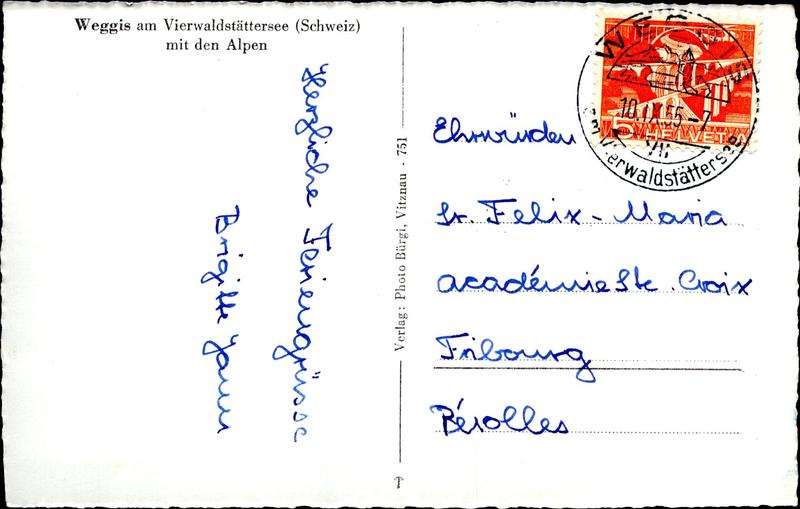 Weggis am Vierwaldstättersee (Schweiz)
mit den Alpen
Herzliche Feriengrüsse
Brigitte
Verlag: Photo Bürgi, Vitznau - 751
WEGGIS
10.IX.55-7
Vierwaldstättersee
5 HELVETIA
Ehrwürden
Sr. Felix-Maria
académie Ste. Croix
Fribourg
Pérolles